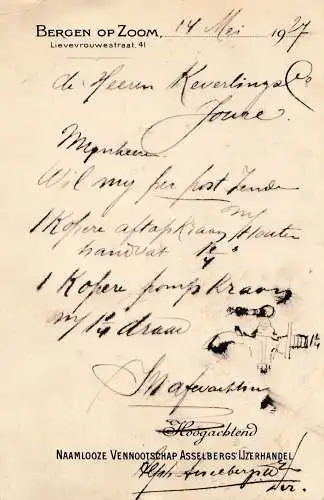 BERGEN OP ZOOM, 14 Mei 1927
Lievevrouwestraat. 41
de Heeren Keverlings & Co
Joure.
Mijnheeren
Wil mij per post zenden
1 Kopere aftapkraan m/ houten
handvat 1¼
1 Kopere pompkraan
m/ 1¼ draad
1¼
In afwachting
Hoogachtend
NAAMLOOZE VENNOOTSCHAP ASSELBERGS' IJZERHANDEL
Alph Asselbergs
Dir.